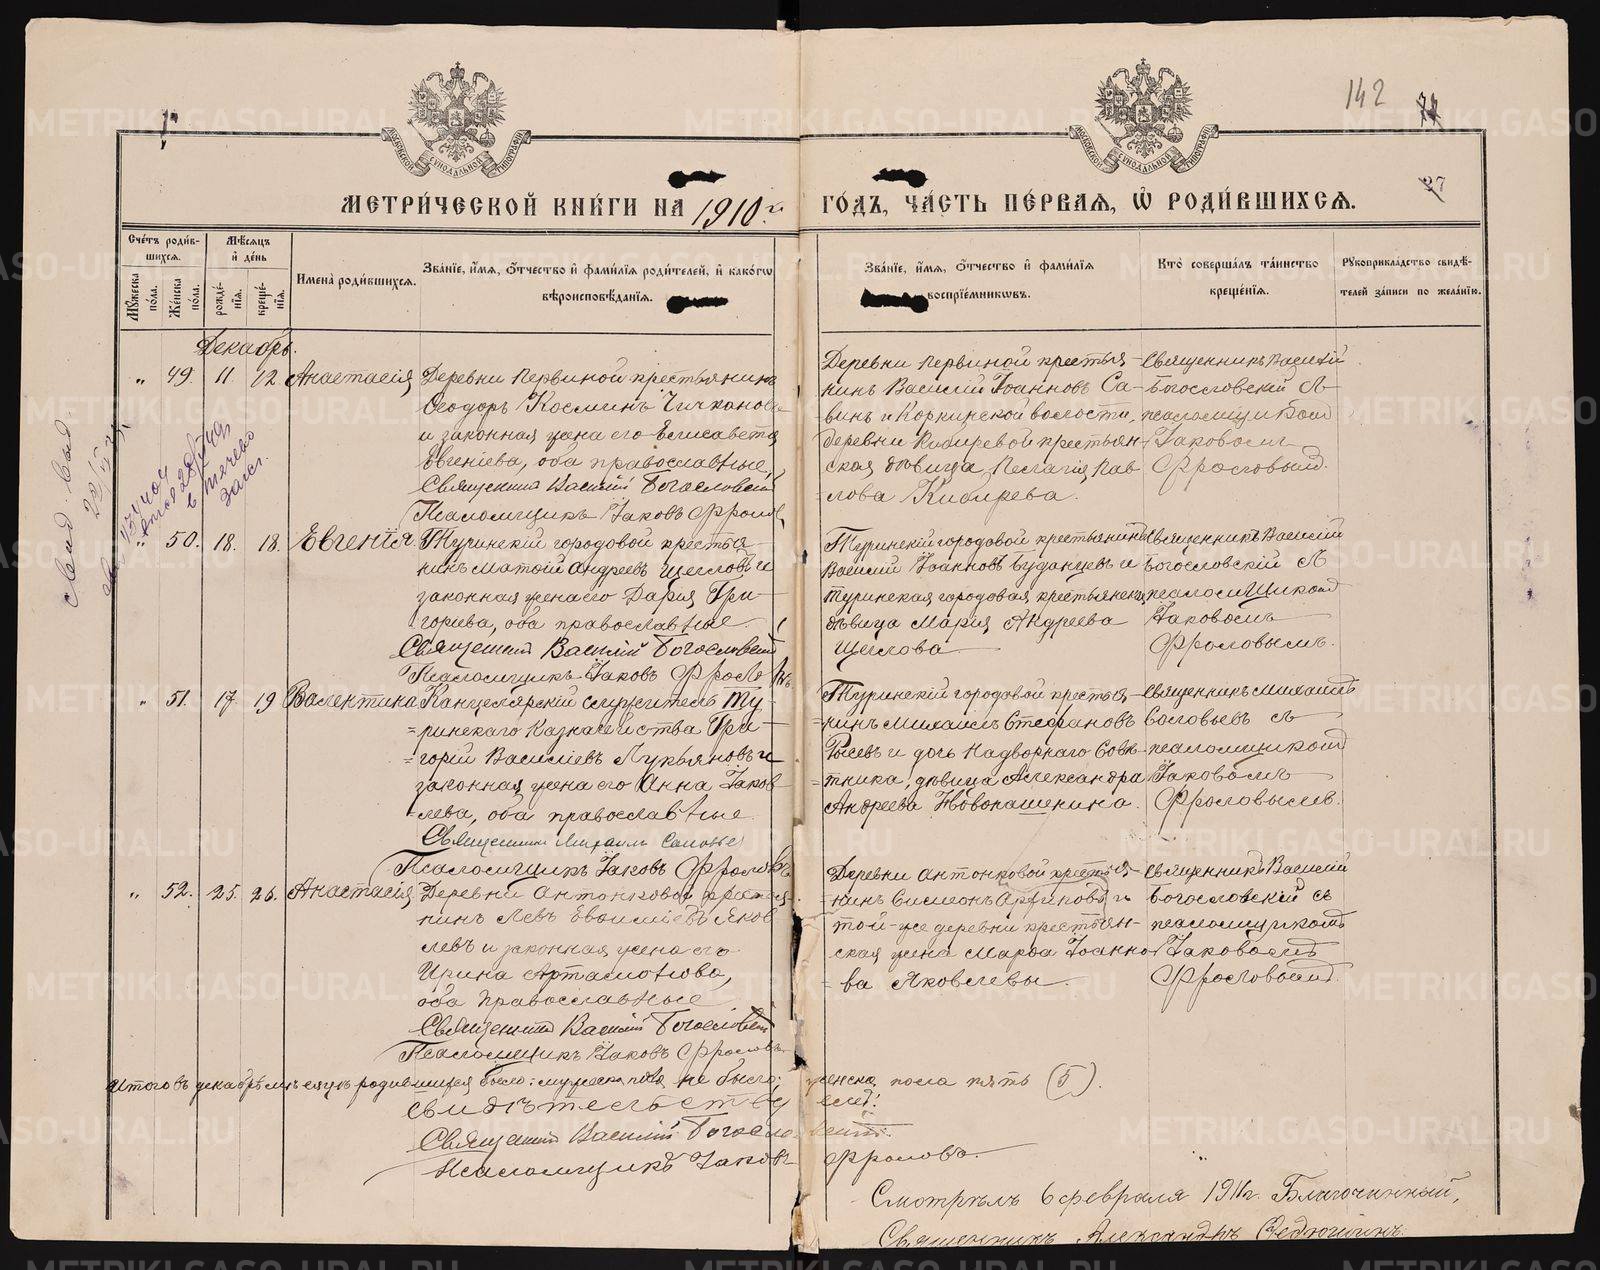 142
27
МОСКОВСКОЙ СѴНОДАЛЬНОЙ ТИПОГРАФІИ
МОСКОВСКОЙ СѴНОДАЛЬНОЙ ТИПОГРАФІИ
МЕТРИ́ЧЕСКОЙ КНИ́ГИ НА 1910 г. ГО́ДЪ, ЧА́СТЬ ПЕ́РВАЯ, Ѽ РОДИ́ВШИХСЯ.
Сче́тъ роди́в-
шихся.
Мꙋжеска по́ла.
Же́нска по́ла.
Мѣ́сяцъ
и҆ де́нь
рожде́-
нїя.
креще́-
нїя.
И҆мена̀ роди́вшихся.
Зва́нїе, и҆́мя, ѻ҆́тчество и҆ фами́лїя роди́телей, и҆ како́гѡ
вѣроисповѣ́данїя.
Зва́нїе, и҆́мя, ѻ҆́тчество и҆ фами́лїя
воспрїе́мникѡвъ.
Кто̀ соверша́лъ та́инство
креще́нїя.
Рꙋкоприкла́дство свидѣ́-
телей за́писи по жела́нїю.
Декабрь.
" 49. 11. 12. Анастасія
Деревни Первиной крестьянинъ
Ѳеодоръ Косминъ Чичкановъ
и законная жена его Елисавета
Евгеніева, оба православные,
Священникъ Василій Богословскій
Псаломщикъ Іаковъ Фроловъ
Деревни Первиной крестья-
нинъ Василій Іоанновъ Са-
винъ и Коркинской волости,
деревни Кибиревой крестьян-
ская дѣвица Пелагія Пав
лова Кибирева.
Священникъ Василій
Богословскій съ
псаломщикомъ
Іаковомъ
Фроловымъ.
" 50. 18. 18. Евгенія.
Туринскій городовой крестья-
нинъ Матѳій Андреевъ Щегловъ и
законная жена его Дарія Гри-
горьева, оба православные.
Священникъ Василій Богословскій
Псаломщикъ Іаковъ Фроловъ
Туринскій городовой крестьянинъ
Василій Іоанновъ Буданцевъ и
Туринская городовая крестьянская
дѣвица Марія Андреева
Щеглова
Священникъ Василій
Богословскій съ
псаломщикомъ
Іаковомъ
Фроловымъ.
" 51. 17. 19 Валентина
Канцелярскій служитель Ту-
ринскаго Казначейства Гри-
горій Василіевъ Лукьяновъ и
законная жена его Анна Іаков
лева, оба православные
Священникъ Михаилъ Соловьевъ
Псаломщикъ Іаковъ Фроловъ
Туринскій городовой крестья-
нинъ Михаилъ Стефановъ
и дочь Надворнаго Совѣ-
тника, дѣвица Александра
Андреева Новопашенина.
Священникъ Михаилъ
Соловьевъ съ
псаломщикомъ
Іаковомъ
Фроловымъ.
" 52. 25. 26. Анастасія
Деревни Антоновой крестья-
нинъ Левъ Евѳиміевъ Яков
левъ и законная жена его
Ирина Артамонова,
оба православные
Священникъ Василій Богословскій
Псаломщикъ Іаковъ Фроловъ
Деревни Антоновой крестья-
нинъ Симеонъ и
той-же деревни крестьян-
ская жена Марѳа Іоанно
ва Яковлевы.
Священникъ Василій
Богословскій съ
псаломщикомъ
Іаковомъ
Фроловымъ.
Итого въ декабрѣ мѣсяцѣ родившихся было: мужеска пола не было; женска пола пять (5).
Свидѣтельству емъ:
Священникъ Василій Богословскій.
Псаломщикъ Іаковъ Фроловъ.
Смотрѣлъ 6 февраля 1911 г. Благочинный,
Священникъ Александръ
METRIKI.GASO-URAL.RU